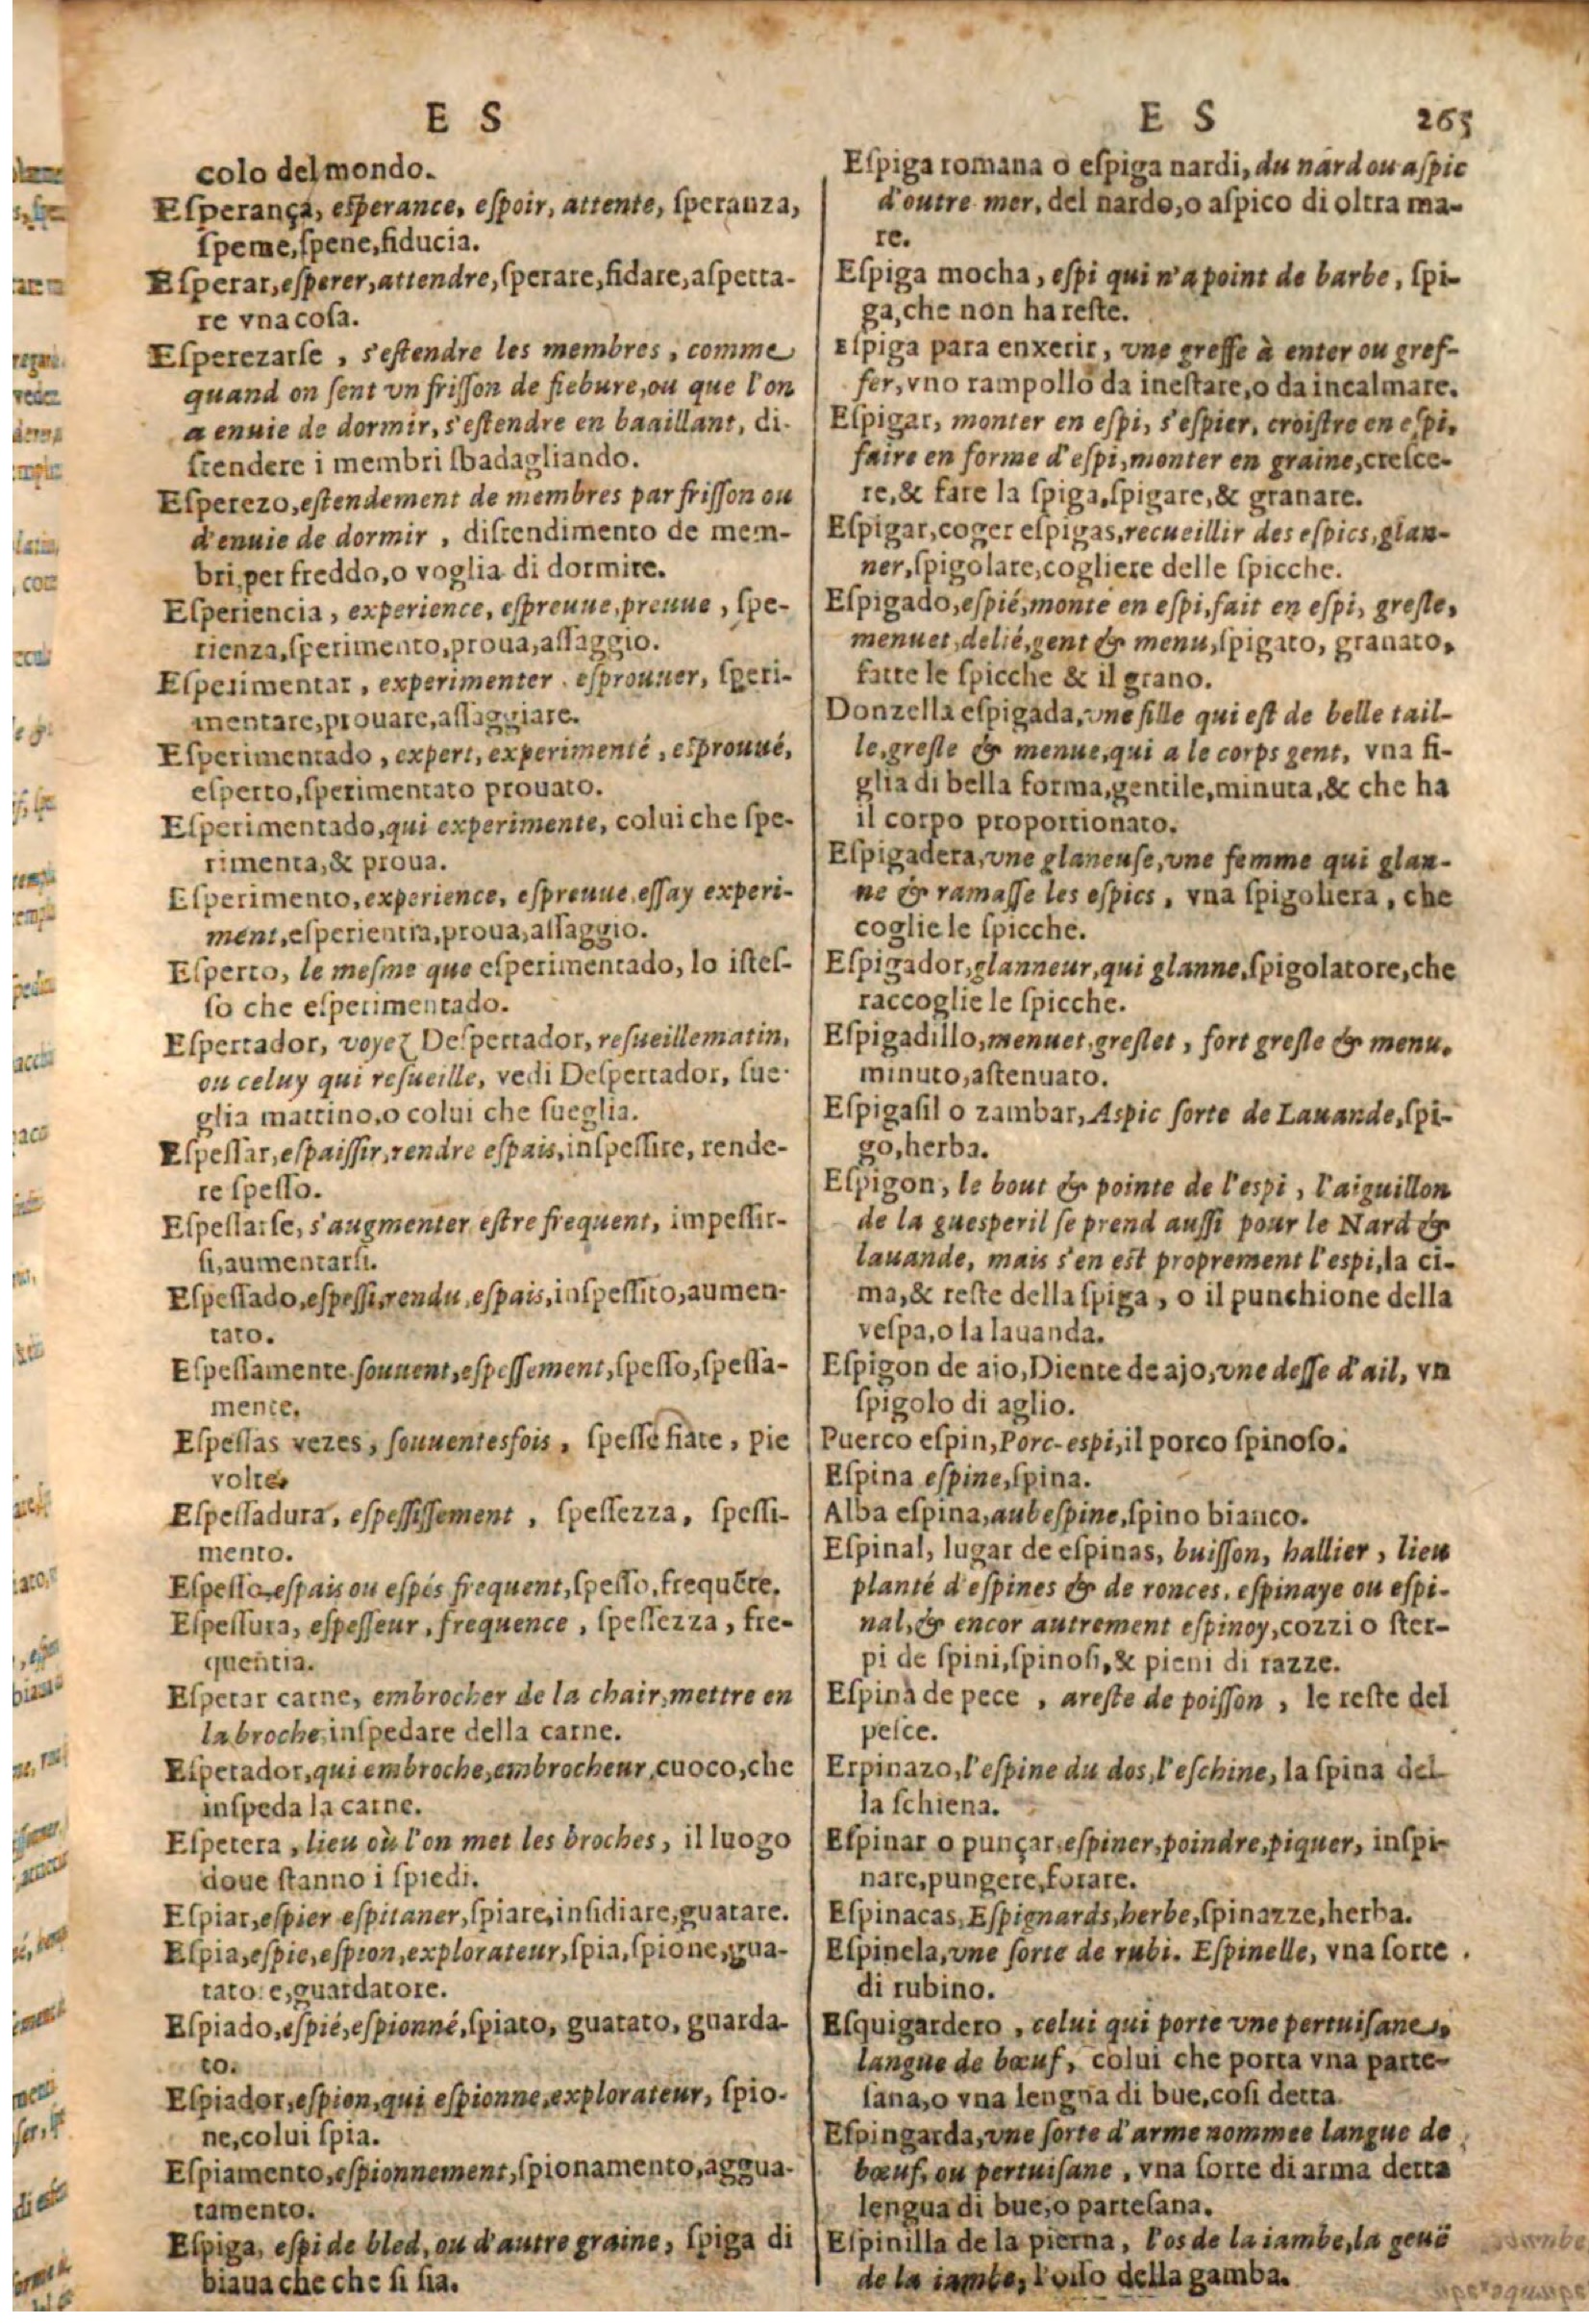 E S
colo del mondo.
Eſperança, eſperance, eſpoir, attente, ſperanza,
ſpeme, ſpene, fiducia.
Eſperar, eſperer, attendre, ſperare, fidare, aſpetta-
re vna coſa.
Eſperezarſe, s'eſtendre les membres, comme
quand on ſent vn friſſon de fiebure, ou que l'on
a enuie de dormir, s'eſtendre en baaillant, di-
ſtendere i membri ſbadagliando.
Eſperezo, eſtendement de membres par friſſon ou
d'enuie de dormir, diſtendimento de mem-
bri, per freddo, o voglia di dormire.
Eſperiencia, experience, eſpreuue, preuue, ſpe-
rienza, ſperimento, proua, aſſaggio.
Eſperimentar, experimenter, eſprouuer, ſperi-
mentare, prouare, aſſaggiare.
Eſperimentado, expert, experimenté, eſprouué,
eſperto, ſperimentato prouato.
Eſperimentado, qui experimente, colui che ſpe-
rimenta, & proua.
Eſperimento, experience, eſpreuue, eſſay experi-
ment, eſperientia, proua, aſſaggio.
Eſperto, le meſme que eſperimentado, lo iſteſ-
ſo che eſperimentado.
Eſpertador, voyez Deſpertador, reſueillematin,
ou celuy qui reſueille, vedi Deſpertador, ſue-
glia mattino, o colui che ſueglia.
Eſpeſſar, eſpaiſſir, rendre eſpais, inſpeſſire, rende-
re ſpeſſo.
Eſpeſſarſe, s'augmenter eſtre frequent, impeſſir-
ſi, aumentarſi.
Eſpeſſado, eſpeſſi, rendu eſpais, inſpeſſito, aumen-
tato.
Eſpeſſamente, ſouuent, eſpeſſement, ſpeſſo, ſpeſſa-
mente.
Eſpeſſas vezes, ſouuentesfois, ſpeſſe fiate, pie
volte.
Eſpeſſadura, eſpeſſiſſement, ſpeſſezza, ſpeſſi-
mento.
Eſpeſſo, eſpais ou eſpés frequent, ſpeſſo, frequẽte.
Eſpeſſura, eſpeſſeur, frequence, ſpeſſezza, fre-
quentia.
Eſpetar carne, embrocher de la chair, mettre en
la broche, inſpedare della carne.
Eſpetador, qui embroche, embrocheur, cuoco, che
inſpeda la carne.
Eſpetera, lieu où l'on met les broches, il luogo
doue ſtanno i ſpiedi.
Eſpiar, eſpier eſpitaner, ſpiare, inſidiare, guatare.
Eſpia, eſpie, eſpion, explorateur, ſpia, ſpione, gua-
tatore, guardatore.
Eſpiado, eſpié, eſpionné, ſpiato, guatato, guarda-
to.
Eſpiador, eſpion, qui eſpionne, explorateur, ſpio-
ne, colui ſpia.
Eſpiamento, eſpionnement, ſpionamento, aggua-
tamento.
Eſpiga, eſpi de bled, ou d'autre graine, ſpiga di
biaua che che ſi ſia.
E S 265
Eſpiga romana o eſpiga nardi, du nard ou aſpic
d'outre mer, del nardo, o aſpico di oltra ma-
re.
Eſpiga mocha, eſpi qui n'a point de barbe, ſpi-
ga, che non ha reſte.
Eſpiga para enxerir, vne greffe à enter ou gref-
fer, vno rampollo da ineſtare, o da incalmare.
Eſpigar, monter en eſpi, s'eſpier, croiſtre en eſpi,
faire en forme d'eſpi, monter en graine, creſce-
re, & fare la ſpiga, ſpigare, & granare.
Eſpigar, coger eſpigas, recueillir des eſpics, glan-
ner, ſpigolare, cogliere delle ſpicche.
Eſpigado, eſpié, monté en eſpi, fait en eſpi, greſle,
menuet, delié, gent & menu, ſpigato, granato,
fatte le ſpicche & il grano.
Donzella eſpigada, vne fille qui eſt de belle tail-
le, greſle & menue, qui a le corps gent, vna fi-
glia di bella forma, gentile, minuta, & che ha
il corpo proportionato.
Eſpigadera, vne glaneuſe, vne femme qui glan-
ne & ramaſſe les eſpics, vna ſpigoliera, che
coglie le ſpicche.
Eſpigador, glanneur, qui glanne, ſpigolatore, che
raccoglie le ſpicche.
Eſpigadillo, menuet, greſlet, fort greſle & menu,
minuto, aſtenuato.
Eſpigaſil o zambar, Aſpic ſorte de Lauande, ſpi-
go, herba.
Eſpigon, le bout & pointe de l'eſpi, l'aiguillon
de la gueſperil ſe prend auſſi pour le Nard &
lauande, mais s'en eſt proprement l'eſpi, la ci-
ma, & reſte della ſpiga, o il punchione della
veſpa, o la lauanda.
Eſpigon de ajo, Diente de ajo, vne deſſe d'ail, vn
ſpigolo di aglio.
Puerco eſpin, Porc-eſpi, il porco ſpinoſo.
Eſpina eſpine, ſpina.
Alba eſpina, aubeſpine, ſpino bianco.
Eſpinal, lugar de eſpinas, buiſſon, hallier, lieu
planté d'eſpines & de ronces, eſpinaye ou eſpi-
nal, & encor autrement eſpinoy, cozzi o ſter-
pi de ſpini, ſpinoſi, & pieni di razze.
Eſpina de pece, areſte de poiſſon, le reſte del
peſce.
Erpinazo, l'eſpine du dos, l'eſchine, la ſpina del-
la ſchiena.
Eſpinar o punçar, eſpiner, poindre, piquer, inſpi-
nare, pungere, forare.
Eſpinacas, Eſpignards, herbe, ſpinazze, herba.
Eſpinela, vne ſorte de rubi. Eſpinelle, vna ſorte
di rubino.
Eſquigardero, celui qui porte vne pertuiſane,
langue de bœuf, colui che porta vna parte-
ſana, o vna lengua di bue, coſi detta.
Eſpingarda, vne ſorte d'arme nommee langue de
bœuf, ou pertuiſane, vna ſorte di arma detta
lengua di bue, o parteſana.
Eſpinilla de la pierna, l'os de la iambe, la geuë
de la iambe, l'oſſo della gamba.